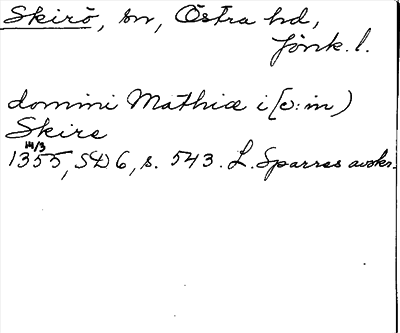 Skirö, sn, Östra hd,
Jönk. l.
domini Mathiæ i [ɔ: in)
Skire
14/3
1355, SD 6, s. 543. L. Sparres avskr.